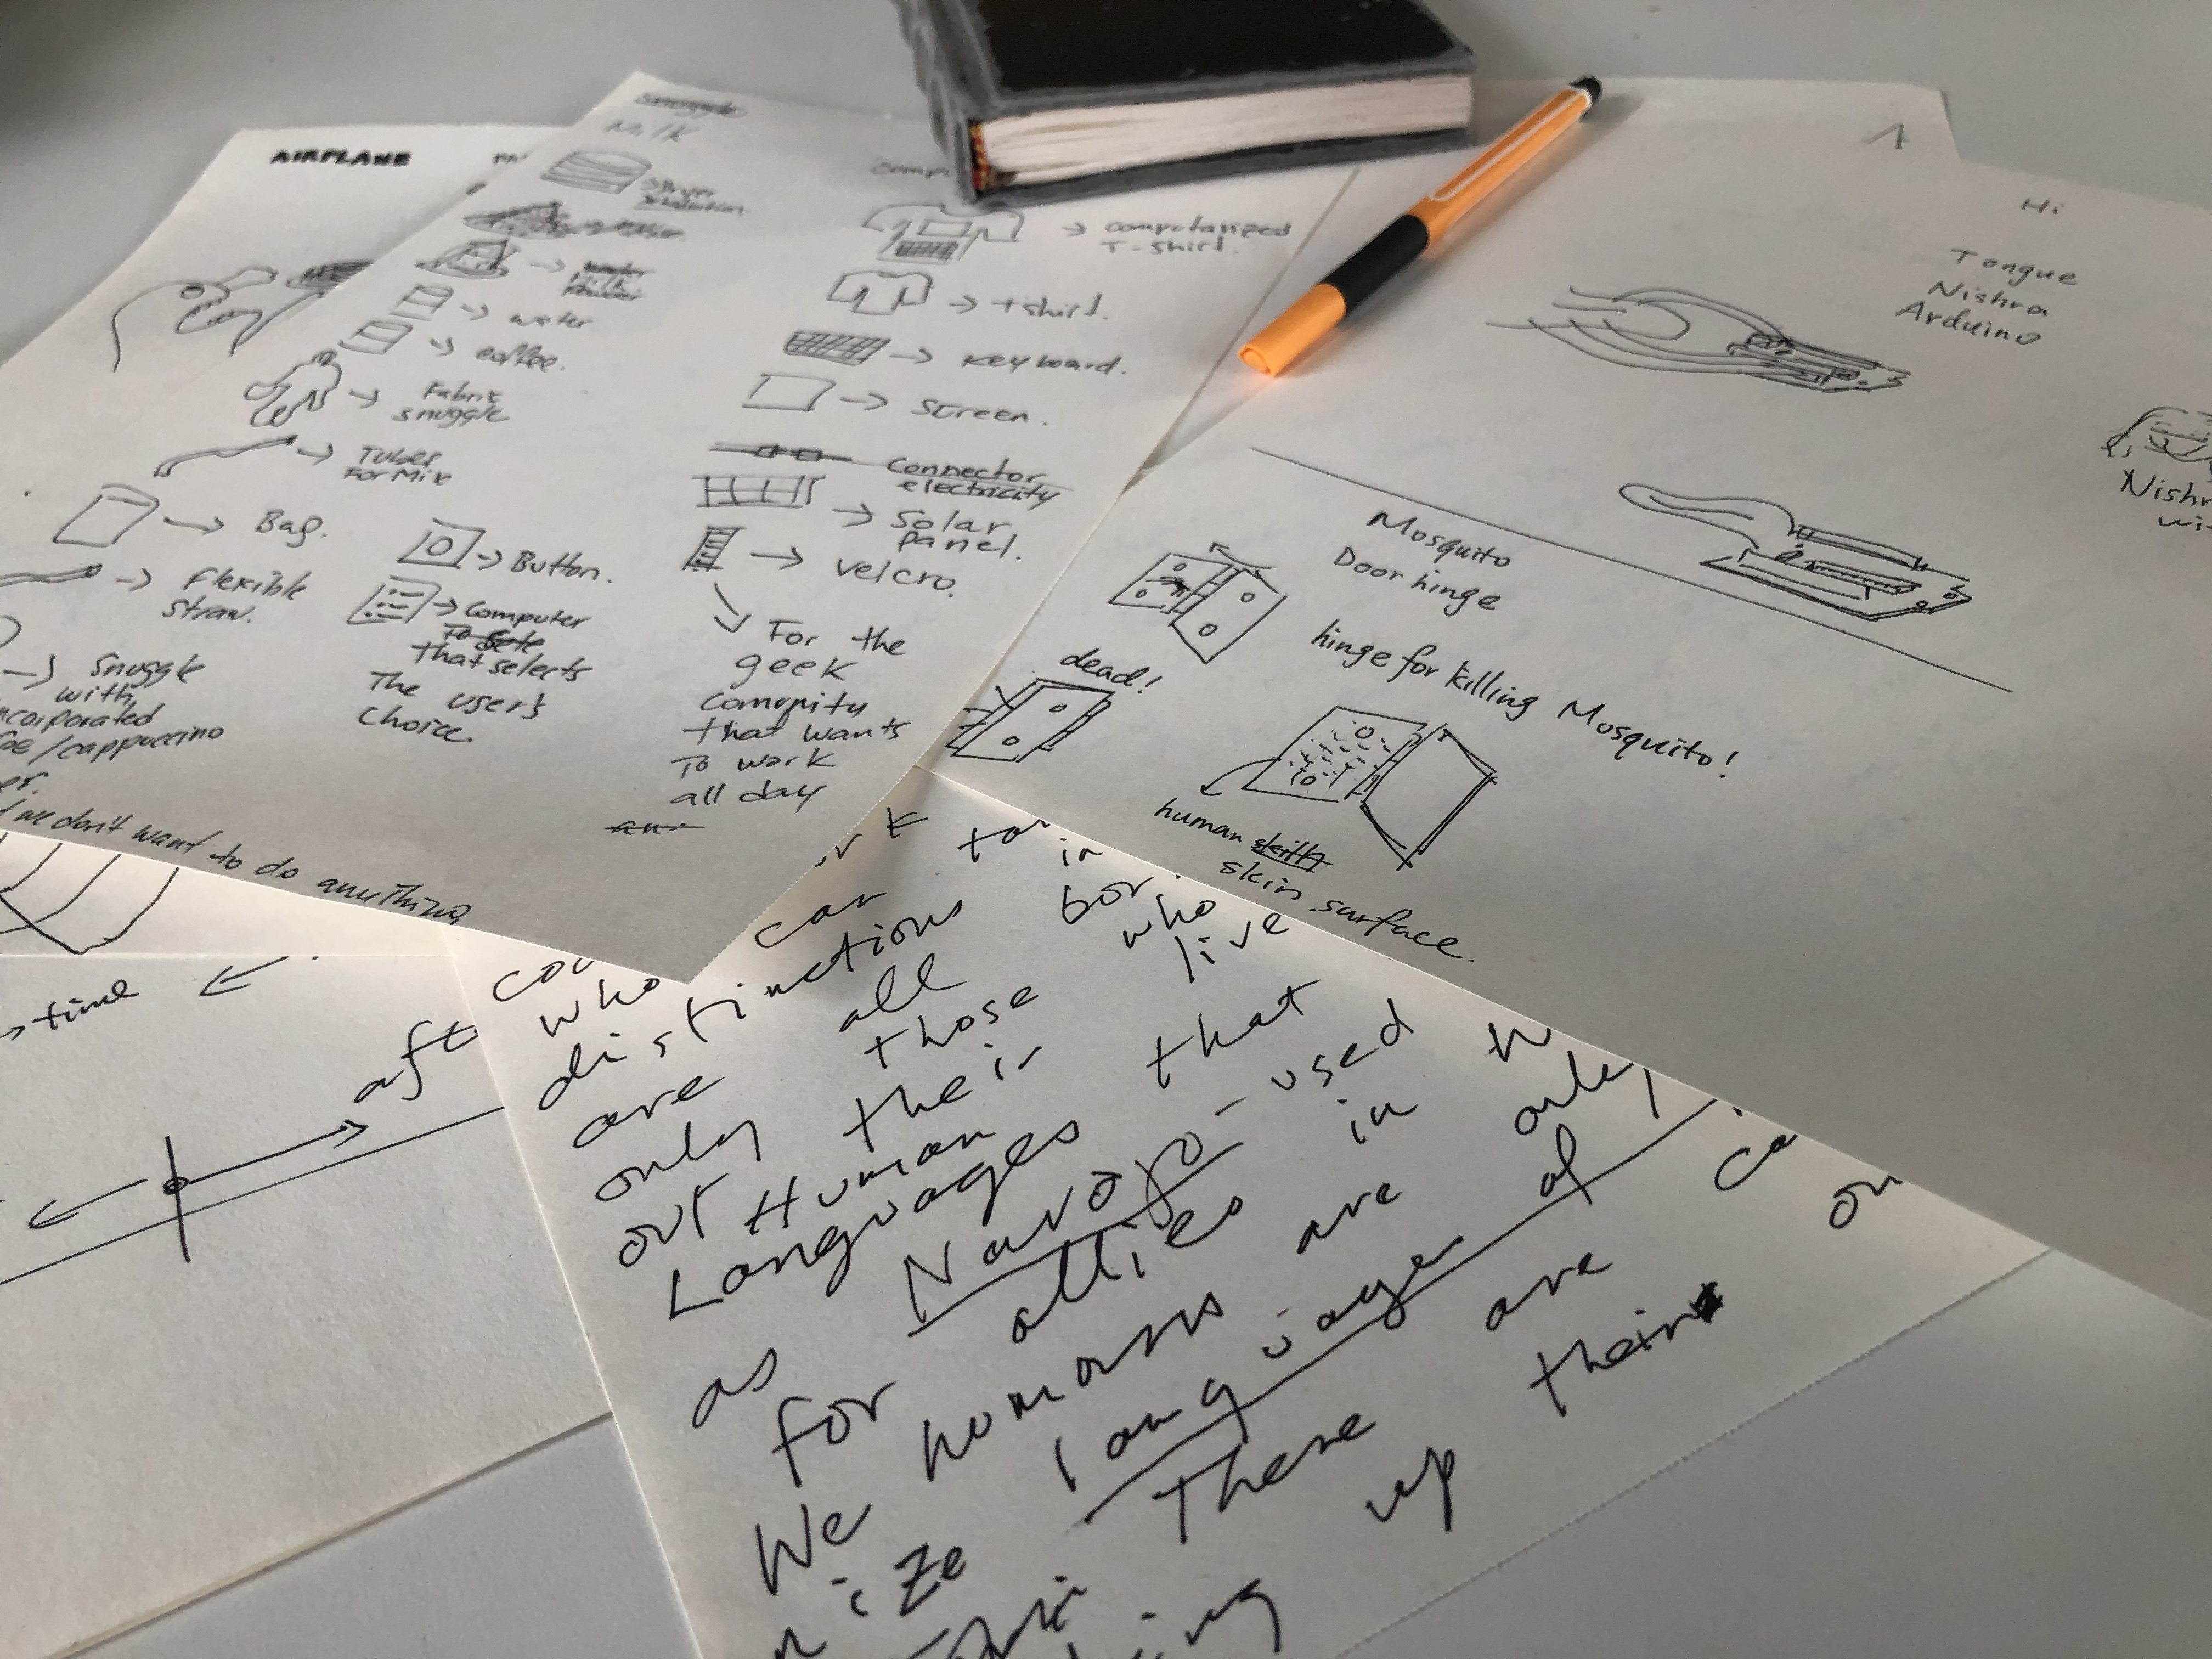 AIRPLANE
Milk
water
coffee.
Fabric
snuggle
Tubes
For Mix
Bag.
Flexible
straw.
Snuggle
with
ncorporated
/cappuccino
we don't want to do anything
Button.
Computer
that selects
The user's
choice
computarized
T-shirt.
tshirt.
Keyboard.
Screen.
Connector
electricity
Solar
panel.
velcro.
For the
geek
comunity
that wants
To work
all day
Hi
Tongue
Nishra
Arduino
Nishr
wi
Mosquito
Door hinge
hinge for killing Mosquito!
dead!
human
skin surface.
time
aft
can
who
distinctions
are all
only those who
out their live
Human
Languages that
as Navajo - used
for allies in
We humans are only
language of
There are
up their
on